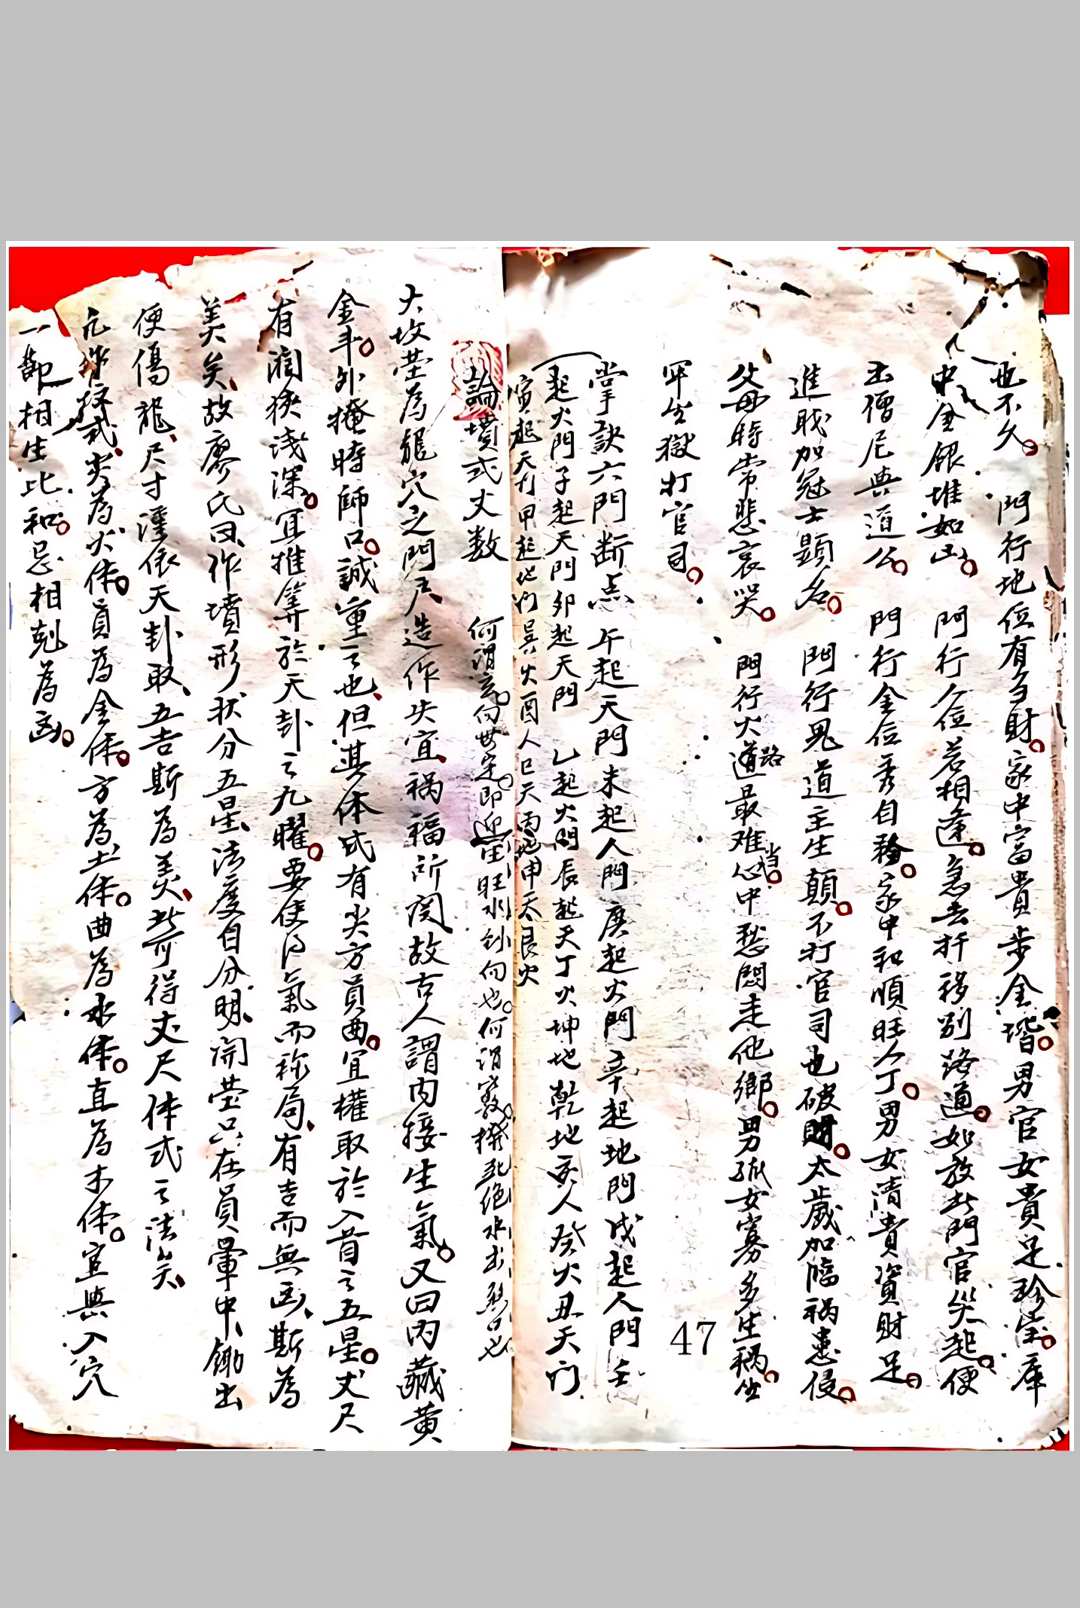 也不久。門行地位有多財。家中富貴步金堦。男官女貴足珍宝。庫
中金銀堆如山。門行人位若相逢。急去扦移別路通。如放此門官災起。便
出僧尼與道公。門行金位秀自務。家中和順旺人丁。男女清貴資財足。
進戝加冠士顯名。門行鬼道主生顛。不打官司也破財。太歲加臨禍患侵。
父母時常悲哀哭。門行火道路最难当。心中愁悶走他鄉。男孤女寡多生禍。
牢獄打官司。
掌訣六門断点 午起天門未起人門庚起火門辛起地門戌起人門壬
起火門子起天門卯起天門 乙起火門辰起天丁火坤地乾地亥人癸火丑天门
寅起天 甲起地门巽火酉人巳天丙地申天艮火
47
論墳式丈数 何謂 向 即迎生旺水 向也。何謂 死絶水出 也
大坟茔為龍穴之門户造作失宜、禍福所関故古人謂内接生氣。又曰内藏黄
金斗。外掩時師口。誠重之也、但其体式有尖方員曲。宜權取於入首之五星。丈尺
有濶狹浅深。宜推筭於天卦之九曜。要使乃氣而称局、有吉而無凶、斯為
美矣、故廖氏曰、作墳形状分五星、法度自分明、開茔只在員暈中、鋤出
便傷龍、尺寸 依天卦取、五吉斯為美、 得丈尺体式之法矣、
凡作坟式、尖為火体。員為金体。方為土体。曲為水体。直為木体。宜與入穴
一 相生比和。忌相剋為凶。